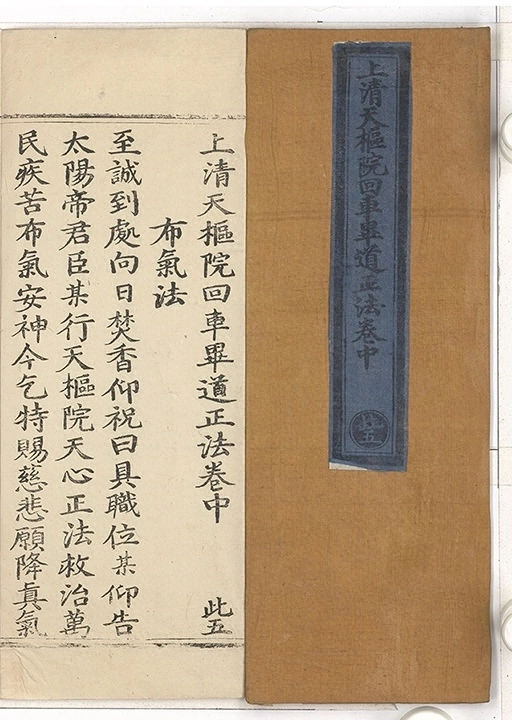 上清天樞院回車畢道正法卷中
此五
上清天樞院回車畢道正法卷中 此五
布氣法
至誠到處向日焚香仰祝曰具職位某仰告
太陽帝君臣某行天樞院天心正法救治萬
民疾苦布氣安神今乞特賜慈悲願降真氣